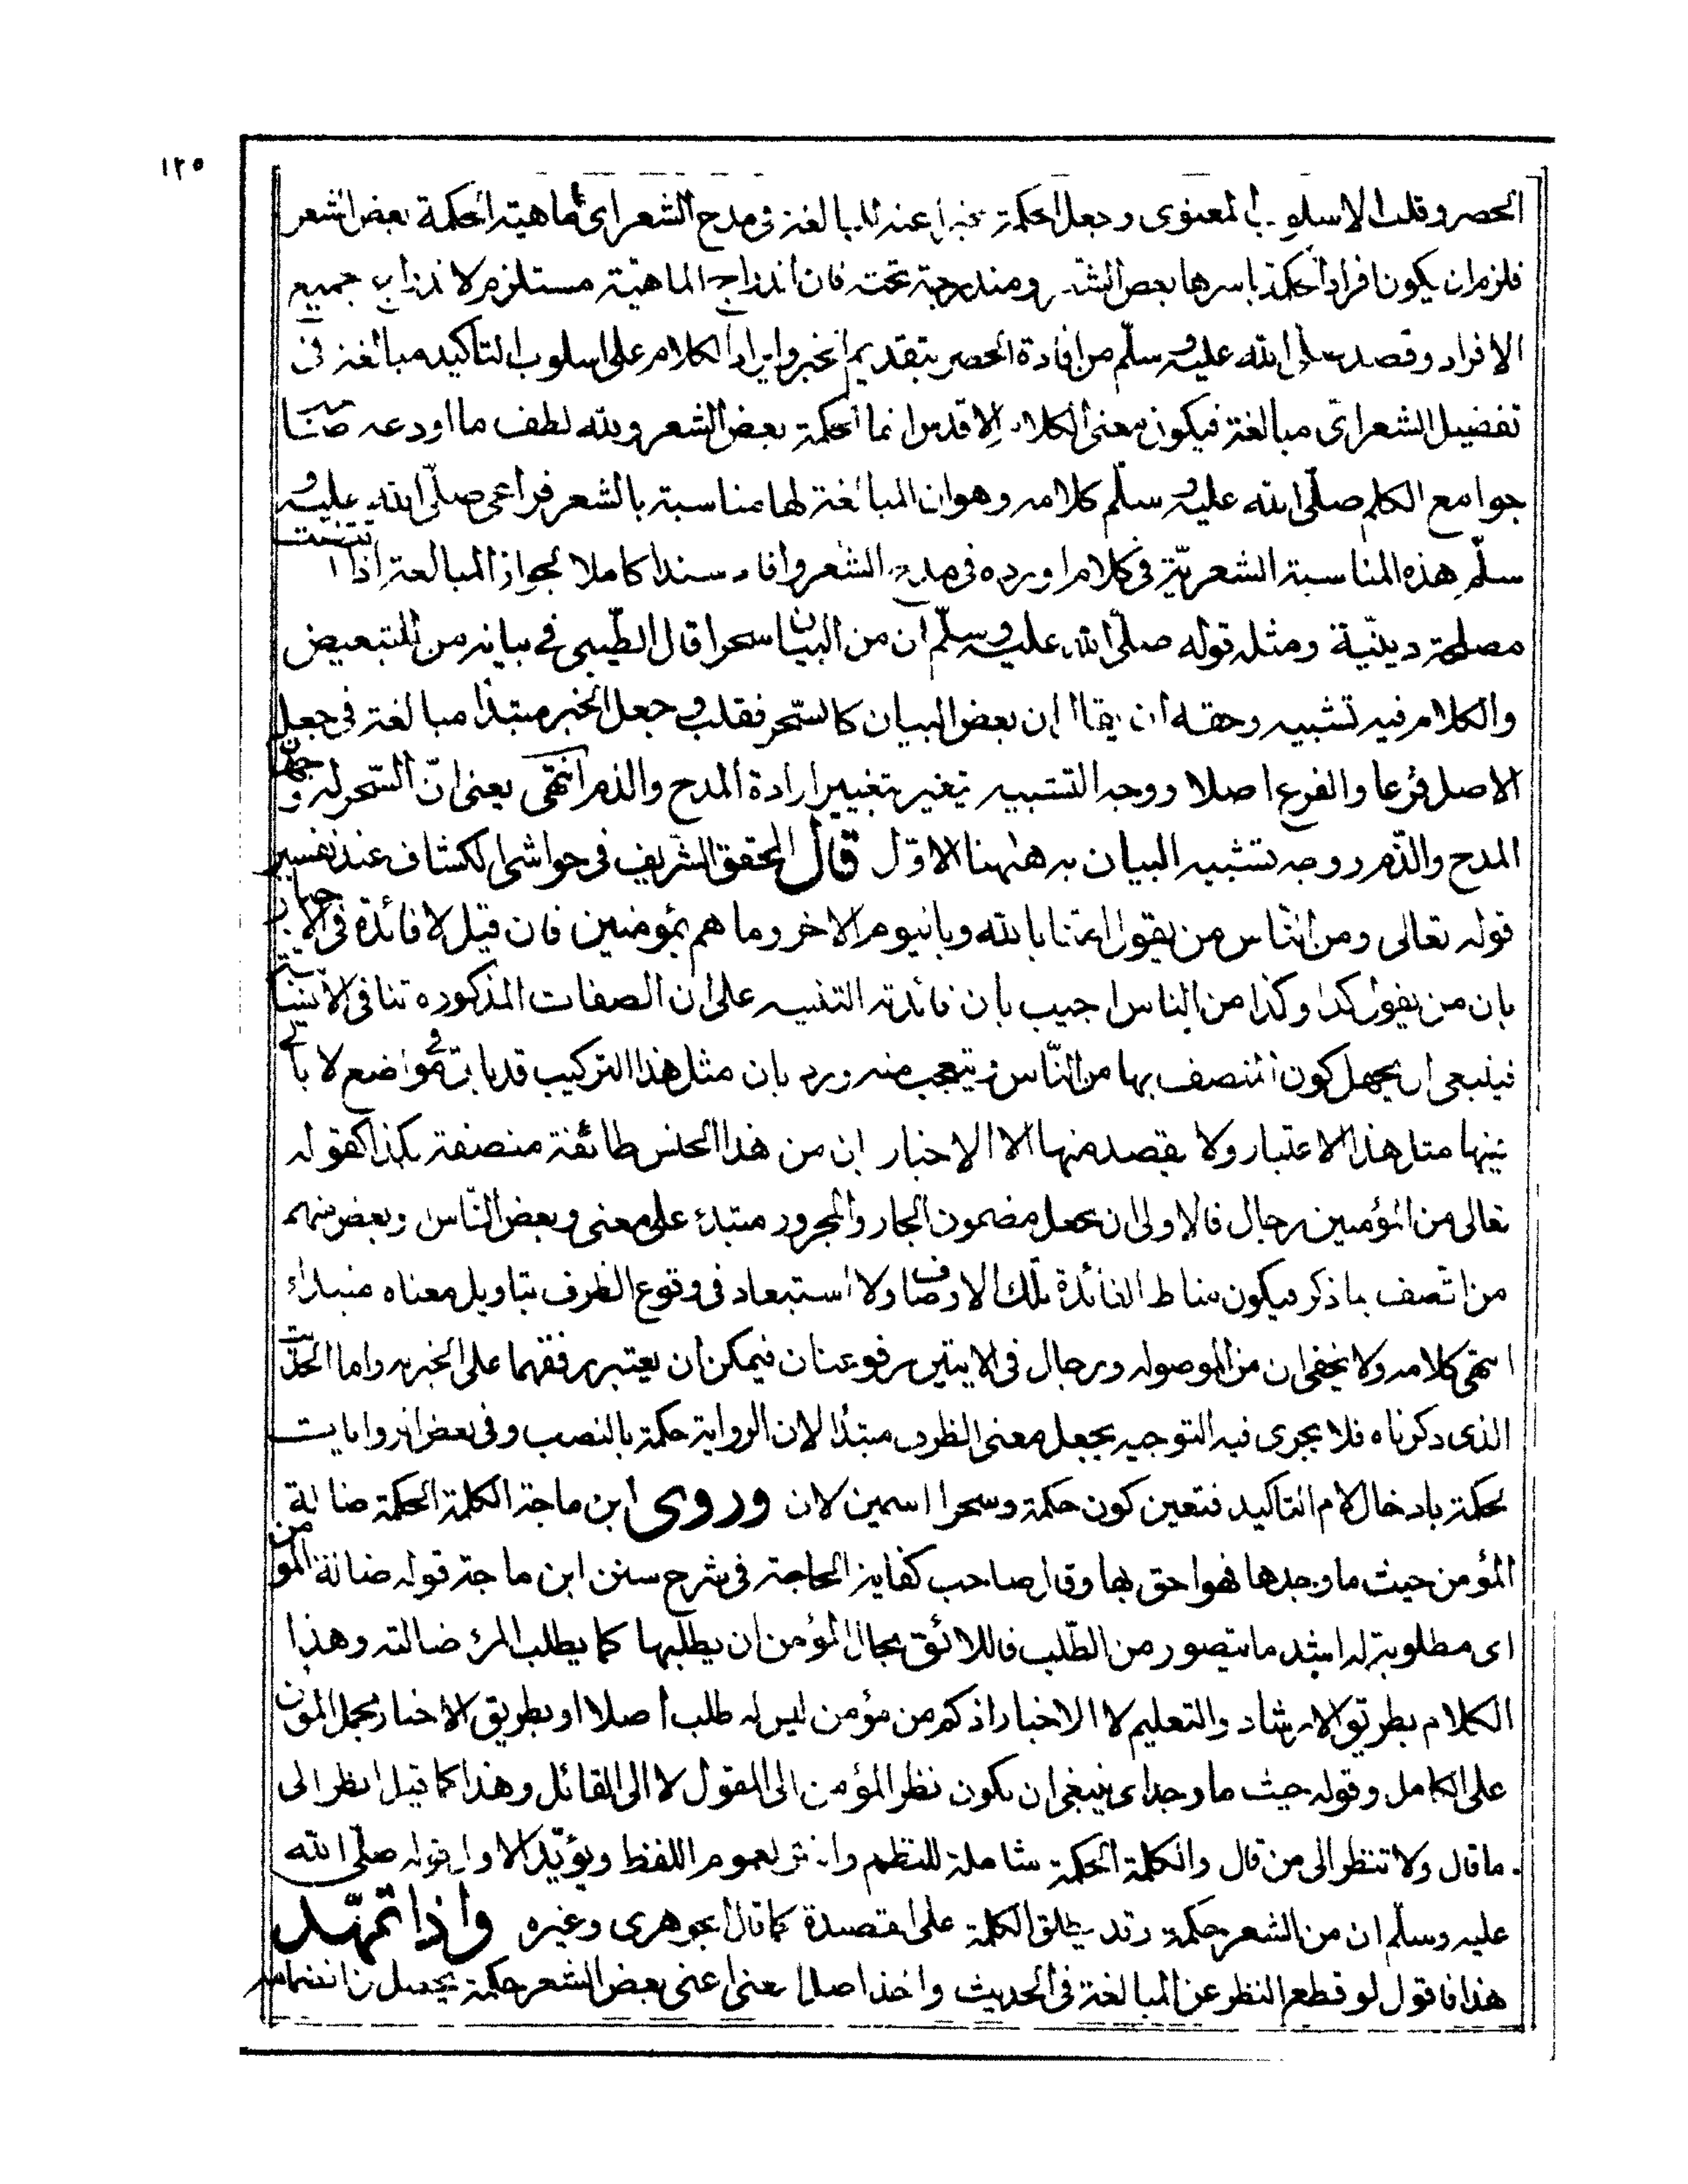 ١٢٥
الحصر وقلب الاسلوب المعنوى وجعل الحكمة خبرا عنه للمبالغة فى مدح الشعر اى ماهية الحكمة بعض الشعر
فلزم ان يكون افراد الحكمة باسرها بعض الشعر ومندرجة تحته فان اندراج الماهية مستلزم لاندراج جميع
الافراد وقصد صلى الله عليه وسلّم من افادة الحصر بتقديم الخبر وايراد الكلام على اسلوب التاكيد مبالغة فى
تفضيل الشعر اى مبالغة فيكون معنى الكلام الاقدس انما الحكمة بعض الشعر ولله لطف ما اودعه صاحب
جوامع الكلم صلّى الله عليه وسلّم كلامه وهو ان المبالغة لها مناسبة بالشعر فراعى صلّى الله عليه و
سلّم هذه المناسبة الشعريّة فى كلام اورده فى مدح الشعر وافاد سندا كاملا لجواز المبالغة اذا اقتضت
مصلحة دينيّة ومثله قوله صلّى الله عليه وسلّم ان من البيان سحرا قال الطّيبى فى بيانه من للتبعيض
والكلام فيه تشبيه وحقه ان يقال ان بعض البيان كالسّحر فقلب وجعل الخبر مبتدأ مبالغة فى جعل
الاصل فرعا والفرع اصلا ووجه التشبيه يتغير بتغيير ارادة المدح والذم انتهى يعنى انّ السّحر له وجهان
المدح والذّم ووجه تشبيه البيان به هٰهنا الاوّل قال المحقق الشّريف فى حواشى الكشاف عند تفسير
قوله تعالى ومن النّاس من يقول امنّا بالله وباليوم الاخر وما هم بمؤمنين فان قيل لا فائدة فى الاخبار
بان من يقول كذا وكذا من الناس اجيب بان فائدته التنبيه على ان الصفات المذكوره تنافى الانسانية
فينبغى ان يجهل كون المتصف بها من النّاس ويتعجب منه ورد بان مثل هذا التركيب قد ياتى فى مواضع لا ياتى
فيها مثل هذا الاعتبار ولا يقصد منها الا الاخبار ان من هذا الجنس طائفة متصفة بكذا كقوله
تعالى من المؤمنين رجال فالاولى ان يجعل مضمون الجار والمجرور مبتدء على معنى وبعض النّاس وبعض منهم
من اتّصف بما ذكر فيكون مناط الفائدة تلك الاوصاف ولا استبعاد فى وقوع الظرف بتاويل معناه مبتداء
انتهى كلامه ولا يخفى ان من الموصوله ورجال فى الايتين مرفوعتان فيمكن ان يعتبر رفعهما على الخبريه واما الحديث
الذى ذكرناه فلا يجرى فيه التوجيه بجعل معنى الظرف مبتدأ لان الرواية حكمة بالنصب وفى بعض الروايات
لحكمة بادخال لام التاكيد فتعين كون حكمة وسحرا اسمين لان وروى ابن ماجة الكلمة الحكمة ضالة
المؤمن حيث ما وجدها فهو احق بها وقال صاحب كفاية الحاجة فى شرح سنن ابن ماجة قوله ضالة المؤمن
اى مطلوبة له اشد ما يتصور من الطّلب فاللائق بحال المؤمن ان يطلبها كما يطلب المرء ضالته وهذا
الكلام بطريق الارشاد والتعليم لا الاخبار اذ كم من مؤمن ليس له طلب اصلا او بطريق الاخبار بحمل المؤمن
على الكامل وقوله حيث ما وجد اى ينبغى ان يكون نظر المؤمن الى المقول لا الى القائل وهذا كما قيل انظر الى
ما قال ولا تنظر الى من قال والكلمة الحكمة شاملة للنظم والنثر لعموم اللفظ ويؤيّد الاول قوله صلّى الله
عليه وسلّم ان من الشعر حكمة وقد يطلق الكلمة على القصيدة كما قال الجوهرى وغيره واذا تمهّد
هذا فاقول لو قطع النظر عن المبالغة فى الحديث واخذ اصل المعنى اعنى بعض الشعر حكمة يحصل من انضمامه